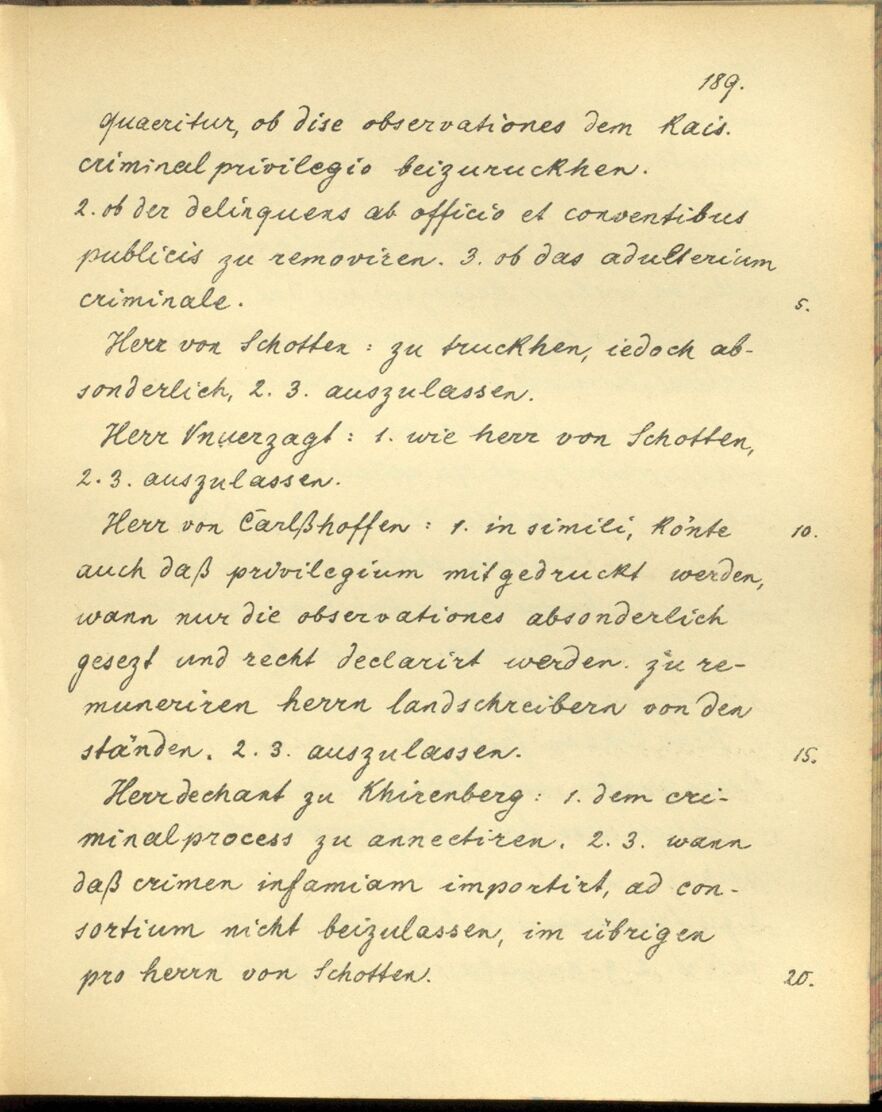 189.
quaeritur, ob dise observationes dem kais.
criminalprivilegio beizuruckhen.
2. ob der delinquens ab officio et conventibus
publicis zu removiren. 3. ob das adulterium
criminale. 5.
Herr von Schotten : zu truckhen, iedoch ab-
sonderlich, 2. 3. auszulassen.
Herr Vnuerzagt : 1. wie herr von Schotten,
2. 3. auszulassen.
Herr von Carlßhoffen : 1. in simili, könte 10.
auch daß privilegium mitgedruckt werden,
wann nur die observationes absonderlich
gesezt und recht declarirt werden. zu re-
muneriren herrn landschreibern von den
ständen. 2. 3. auszulassen. 15.
Herr dechant zu Khirenberg : 1. dem cri-
minalprocess zu annectiren. 2. 3. wann
daß crimen infamiam importirt, ad con-
sortium nicht beizulassen, im übrigen
pro herrn von Schotten. 20.